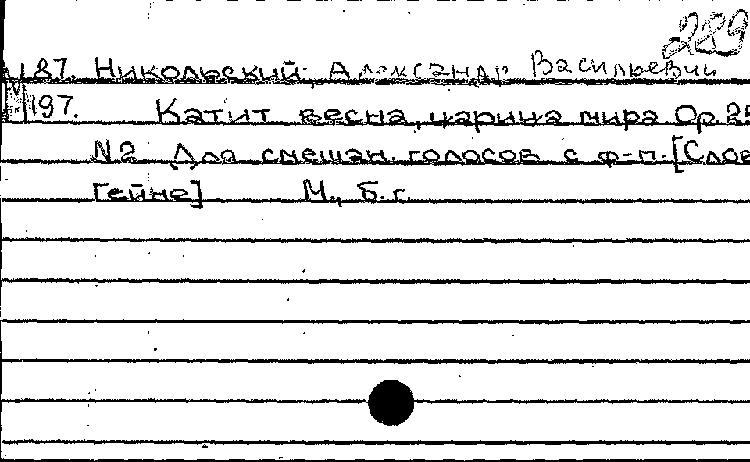 289
187. Никольский, Александр Васильевич
М197. Катит весна, царица мира Ор. 25
N2 Для смешан. голосов с ф-п. [Слов
Гейне] М., б.г.